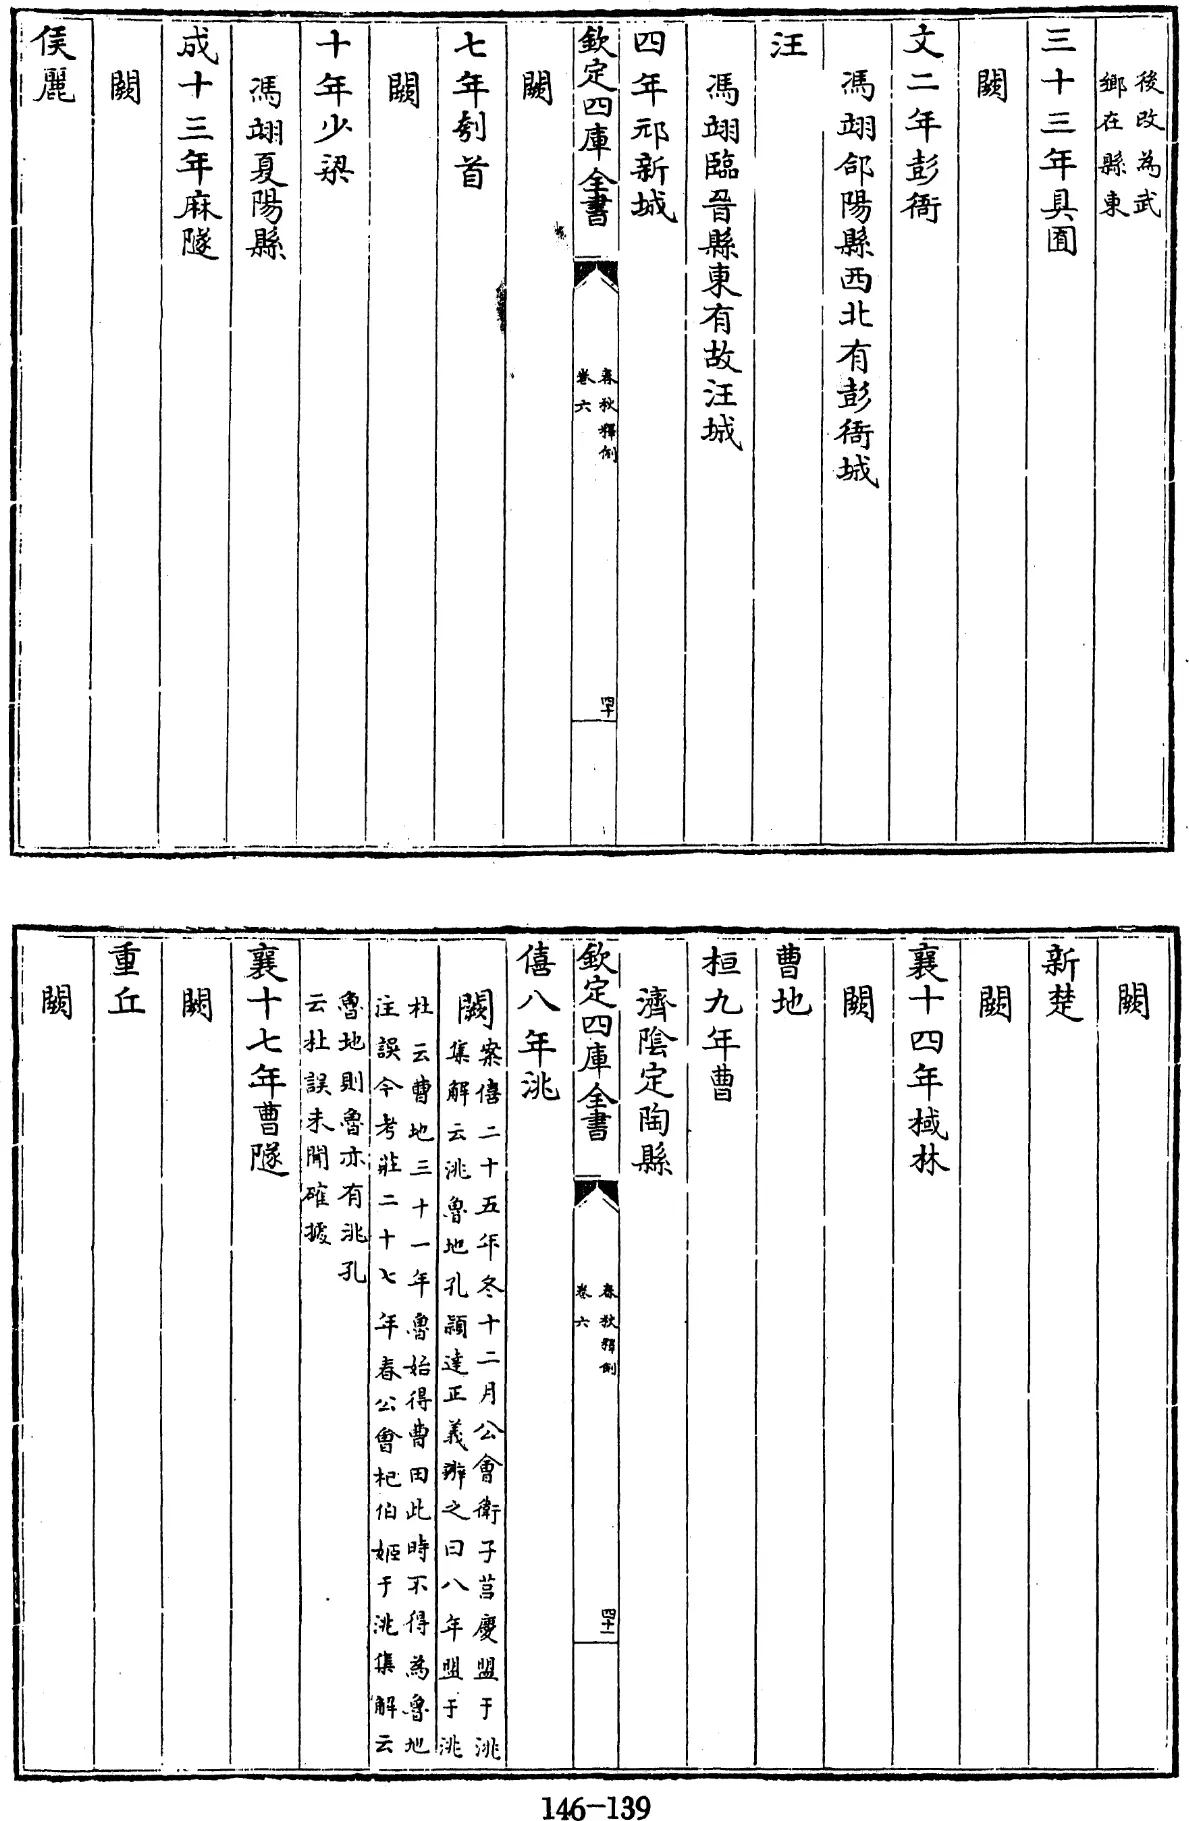 後改為武
鄉在縣東
三十三年具囿
闕
文二年彭衙
馮翊郃陽縣西北有彭衙城
汪
馮翊臨晉縣東有故汪城
四年邧新城
欽定四庫全書
春秋釋例
卷六
四十
闕
七年刳首
闕
十年少梁
馮翊夏陽縣
成十三年麻隧
闕
侯麗
闕
新楚
闕
襄十四年棫林
闕
曹地
桓九年曹
濟陰定陶縣
欽定四庫全書
春秋釋例
卷六
四十一
僖八年洮
闕案僖二十五年冬十二月公會衛子莒慶盟于洮
集解云洮魯地孔穎達正義辨之曰八年盟于洮
杜云曹地三十一年魯始得曹田此時不得為魯地
注誤今考莊二十七年春公會杞伯姬于洮集解云
魯地則魯亦有洮孔
云杜誤未聞確據
襄十七年曹隧
闕
重丘
闕
146-139